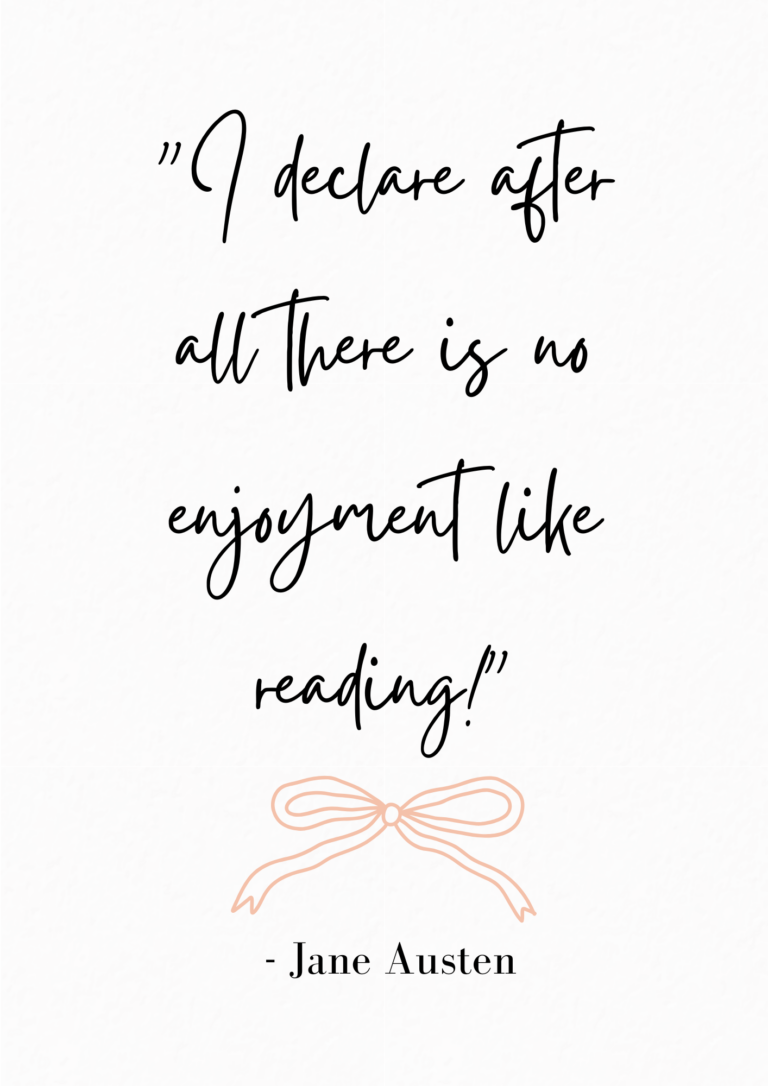 "I declare after
all there is no
enjoyment like
reading!"
- Jane Austen